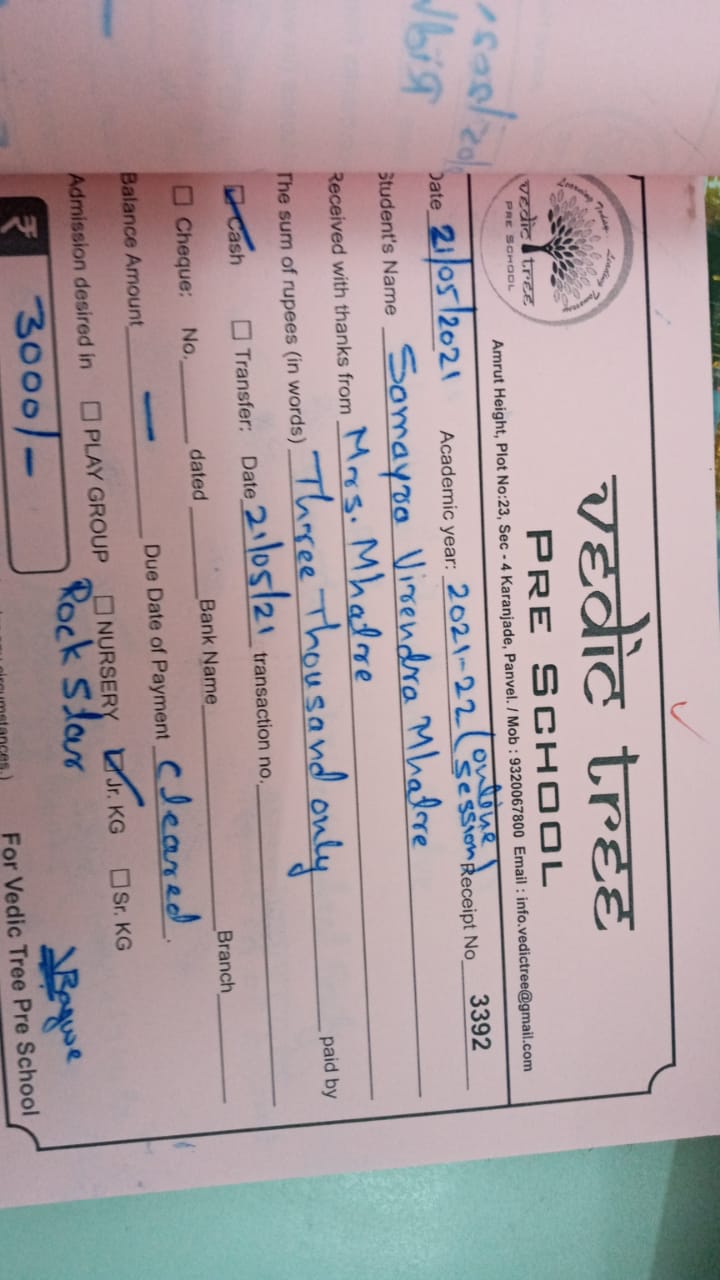 vedic tree
PRE SCHOOL
vedic tree
PRE SCHOOL
Amrut Height, Plot No:23, Sec - 4 Karanjade, Panvel. / Mob : 9320067800 Email : info.vedictree@gmail.com
Date 21/05/2021 Academic year: 2021-22 (online session) Receipt No 3392
Student's Name Samayra Virendra Mhatre
Received with thanks from Mrs. Mhatre
The sum of rupees (in words) Three Thousand only paid by
Cash Transfer: Date 21/05/21 transaction no.
Cheque: No. dated Bank Name Branch
Balance Amount — Due Date of Payment Cleared.
Admission desired in PLAY GROUP NURSERY Jr. KG Sr. KG
Rock Star
₹ 3000/-
For Vedic Tree Pre School